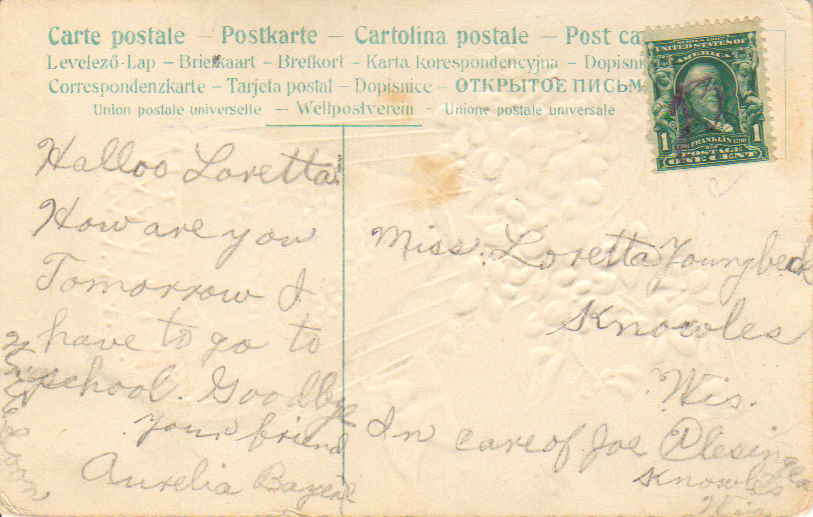 Carte postale — Postkarte — Cartolina postale — Post ca
Levelező-Lap — Briefkaart — Brefkort — Karta korespondencyjna — Dopisni
Correspondenzkarte — Tarjeta postal — Dopisnice — ОТКРЫТОЕ ПИСЬМ
Union postale universelle — Weltpostverein — Unione postale universale
UNITED STATES OF
AMERICA
1 FRANKLIN 1
POSTAGE
ONE CENT
Halloo Loretta.
How are you
Tomorrow I
have to go to
school. Goodbye
your friend
Aurelia
Write Soon
Miss. Loretta Youngbeck
Knowles
Wis.
In care of Joe
Knowles
Wis